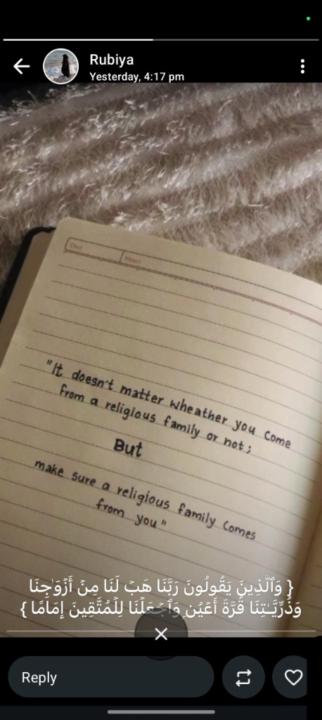 Rubiya
Yesterday, 4:17 pm
"It doesn't matter wheather you come
from a religious family or not;
But
make sure a religious family comes
from you"
{ وَٱلَّذِينَ يَقُولُونَ رَبَّنَا هَبْ لَنَا مِنْ أَزْوَٰجِنَا
وَذُرِّيَّـٰتِنَا قُرَّةَ أَعْيُنٍ وَٱجْعَلْنَا لِلْمُتَّقِينَ إِمَامًا }
Reply